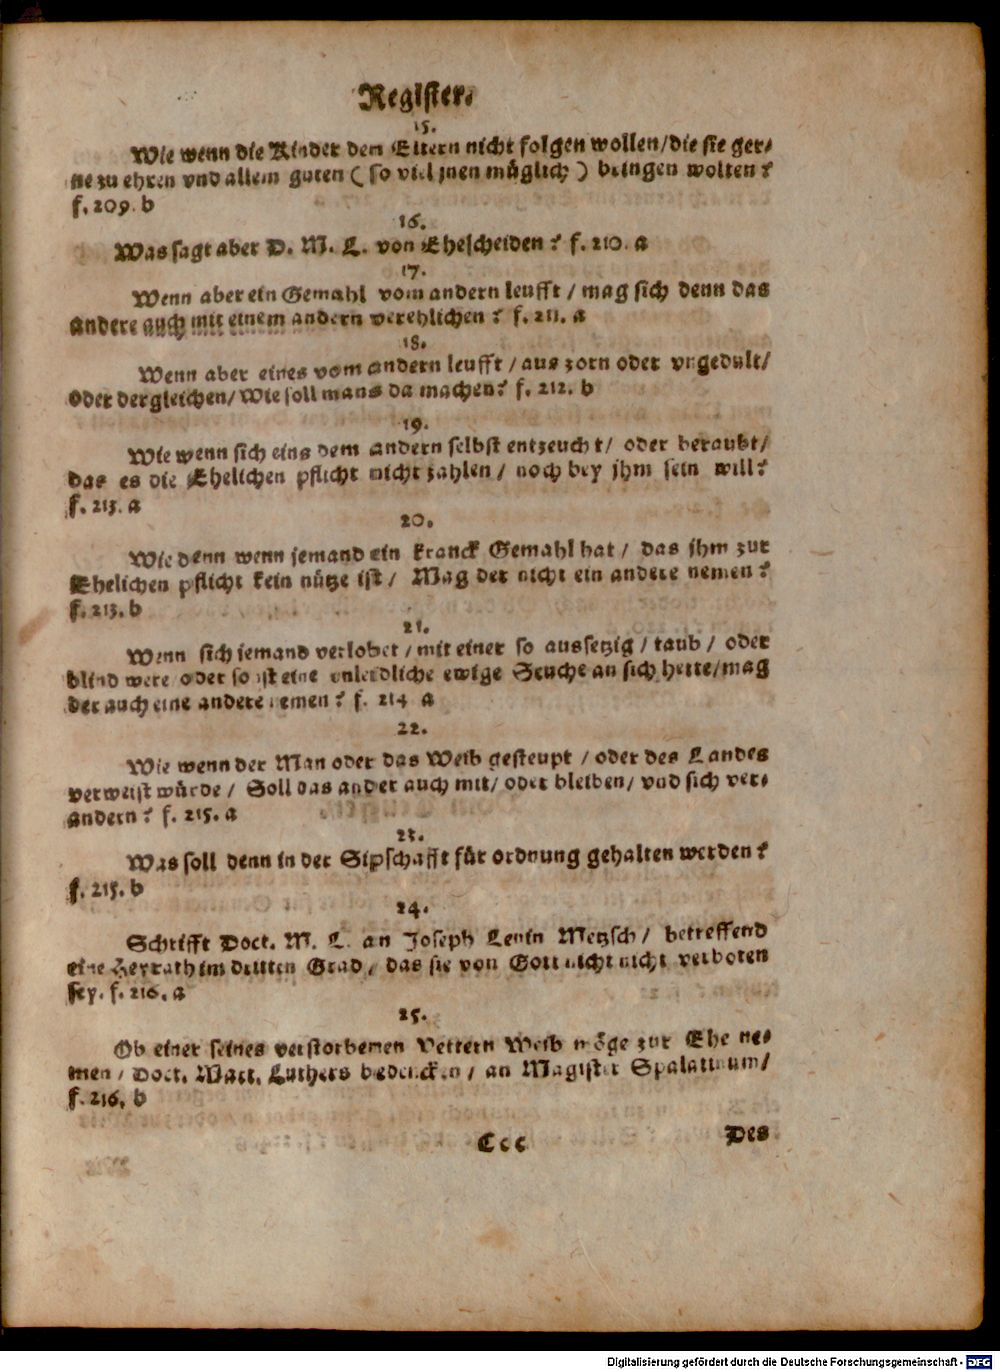 Register.
15.
Wie wenn die Kinder dem Eltern nicht folgen wollen/die sie ger-
ne zu ehren vnd allem guten ( so viel jnen müglich ) bringen wolten?
f. 209. b
16.
Was sagt aber D. M. L. von Ehescheiden? f. 210. a
17.
Wenn aber ein Gemahl vom andern leufft / mag sich denn das
andere auch mit einem andern verehlichen? f. 211. a
18.
Wenn aber eines vom andern leufft / aus zorn oder vngedult/
oder dergleichen/ Wie soll mans da machen? f. 212. b
19.
Wie wenn sich eins dem andern selbst entzeucht/ oder beraubt/
das es die Ehelichen pflicht nicht zahlen / noch bey jhm sein will?
f. 213. a
20.
Wie denn wenn jemand ein kranck Gemahl hat / das jhm zur
Ehelichen pflicht kein nütze ist / Mag der nicht ein andere nemen?
f. 213. b
21.
Wenn sich jemand verlobet / mit einer so aussetzig / taub / oder
blind were oder sonst eine vnleidliche ewige Seuche an sich hette/mag
der auch eine andere nemen? f. 214 a
22.
Wie wenn der Man oder das Weib gesteupt / oder des Landes
verweist würde / Soll das ander auch mit/ oder bleiben/ vnd sich ver-
andern? f. 215. a
23.
Was soll denn in der Sipschafft für ordnung gehalten werden?
f. 215. b
24.
Schrifft Doct. M. L. an Joseph Levin Metzsch / betreffend
eine Heyrath im dritten Grad / das sie von Gott nicht nicht verboten
sey. f. 216. a
25.
Ob einer seines verstorbenen Vettern Weib möge zur Ehe ne-
men / Doct. Mart. Luthers bedencken / an Magister Spalatinum/
f. 216. b
Ccc Des
Digitalisierung gefördert durch die Deutsche Forschungsgemeinschaft - DFG